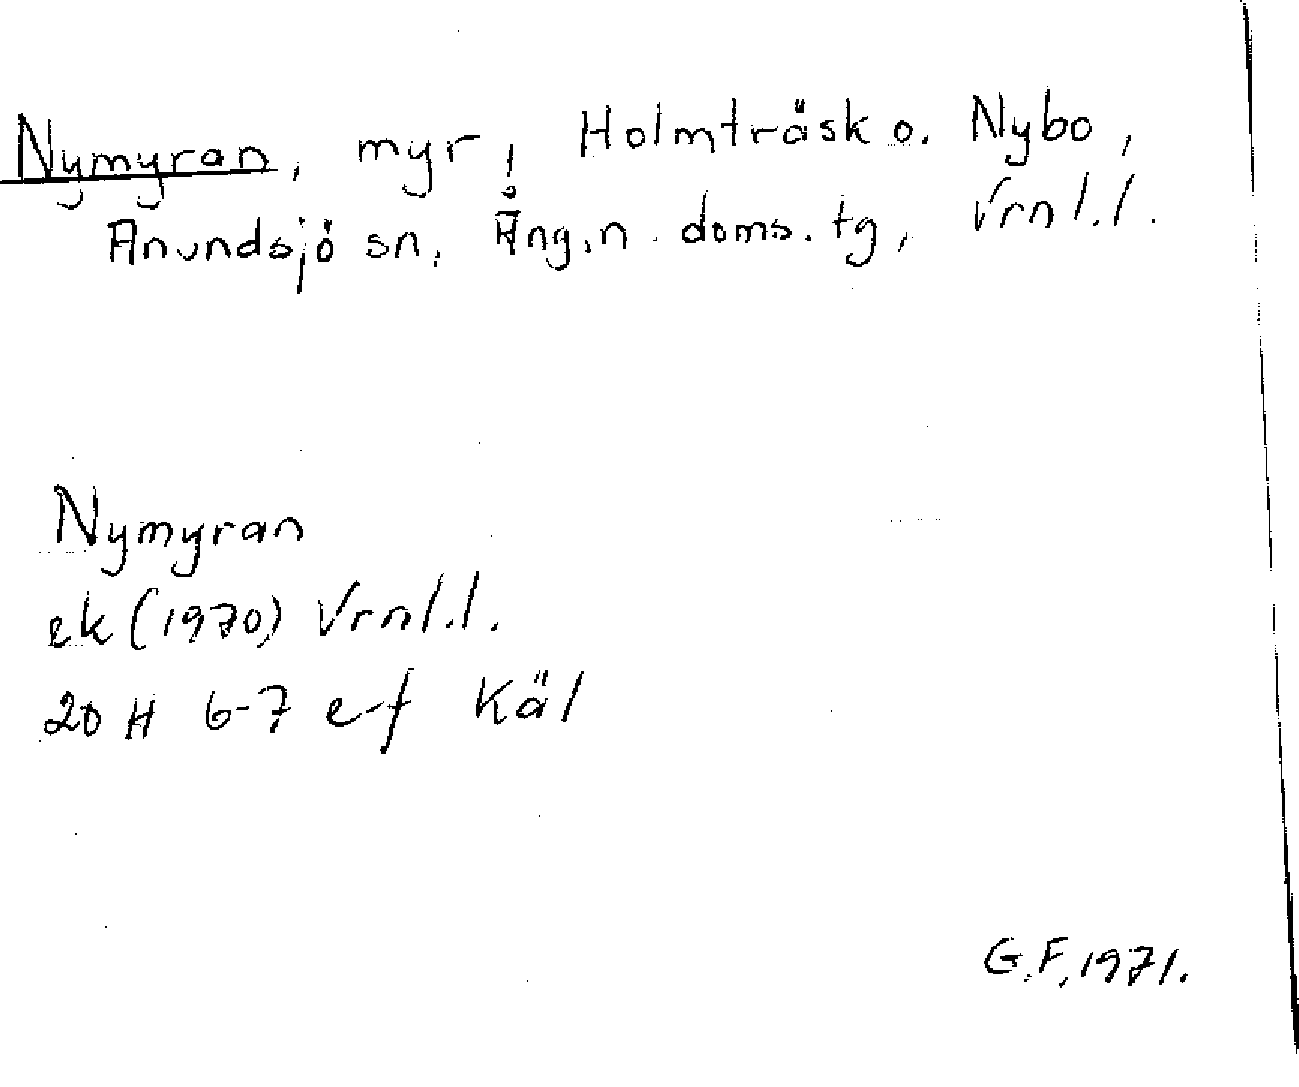 Nymyran, myr, Holmträsk o. Nybo,
Anundsjö sn, Ång.n. doms. tg, Vrnl.l.
Nymyran
ek (1970) Vrnl.l.
20 H 6-7 e-f Käl
G.F. 1971.